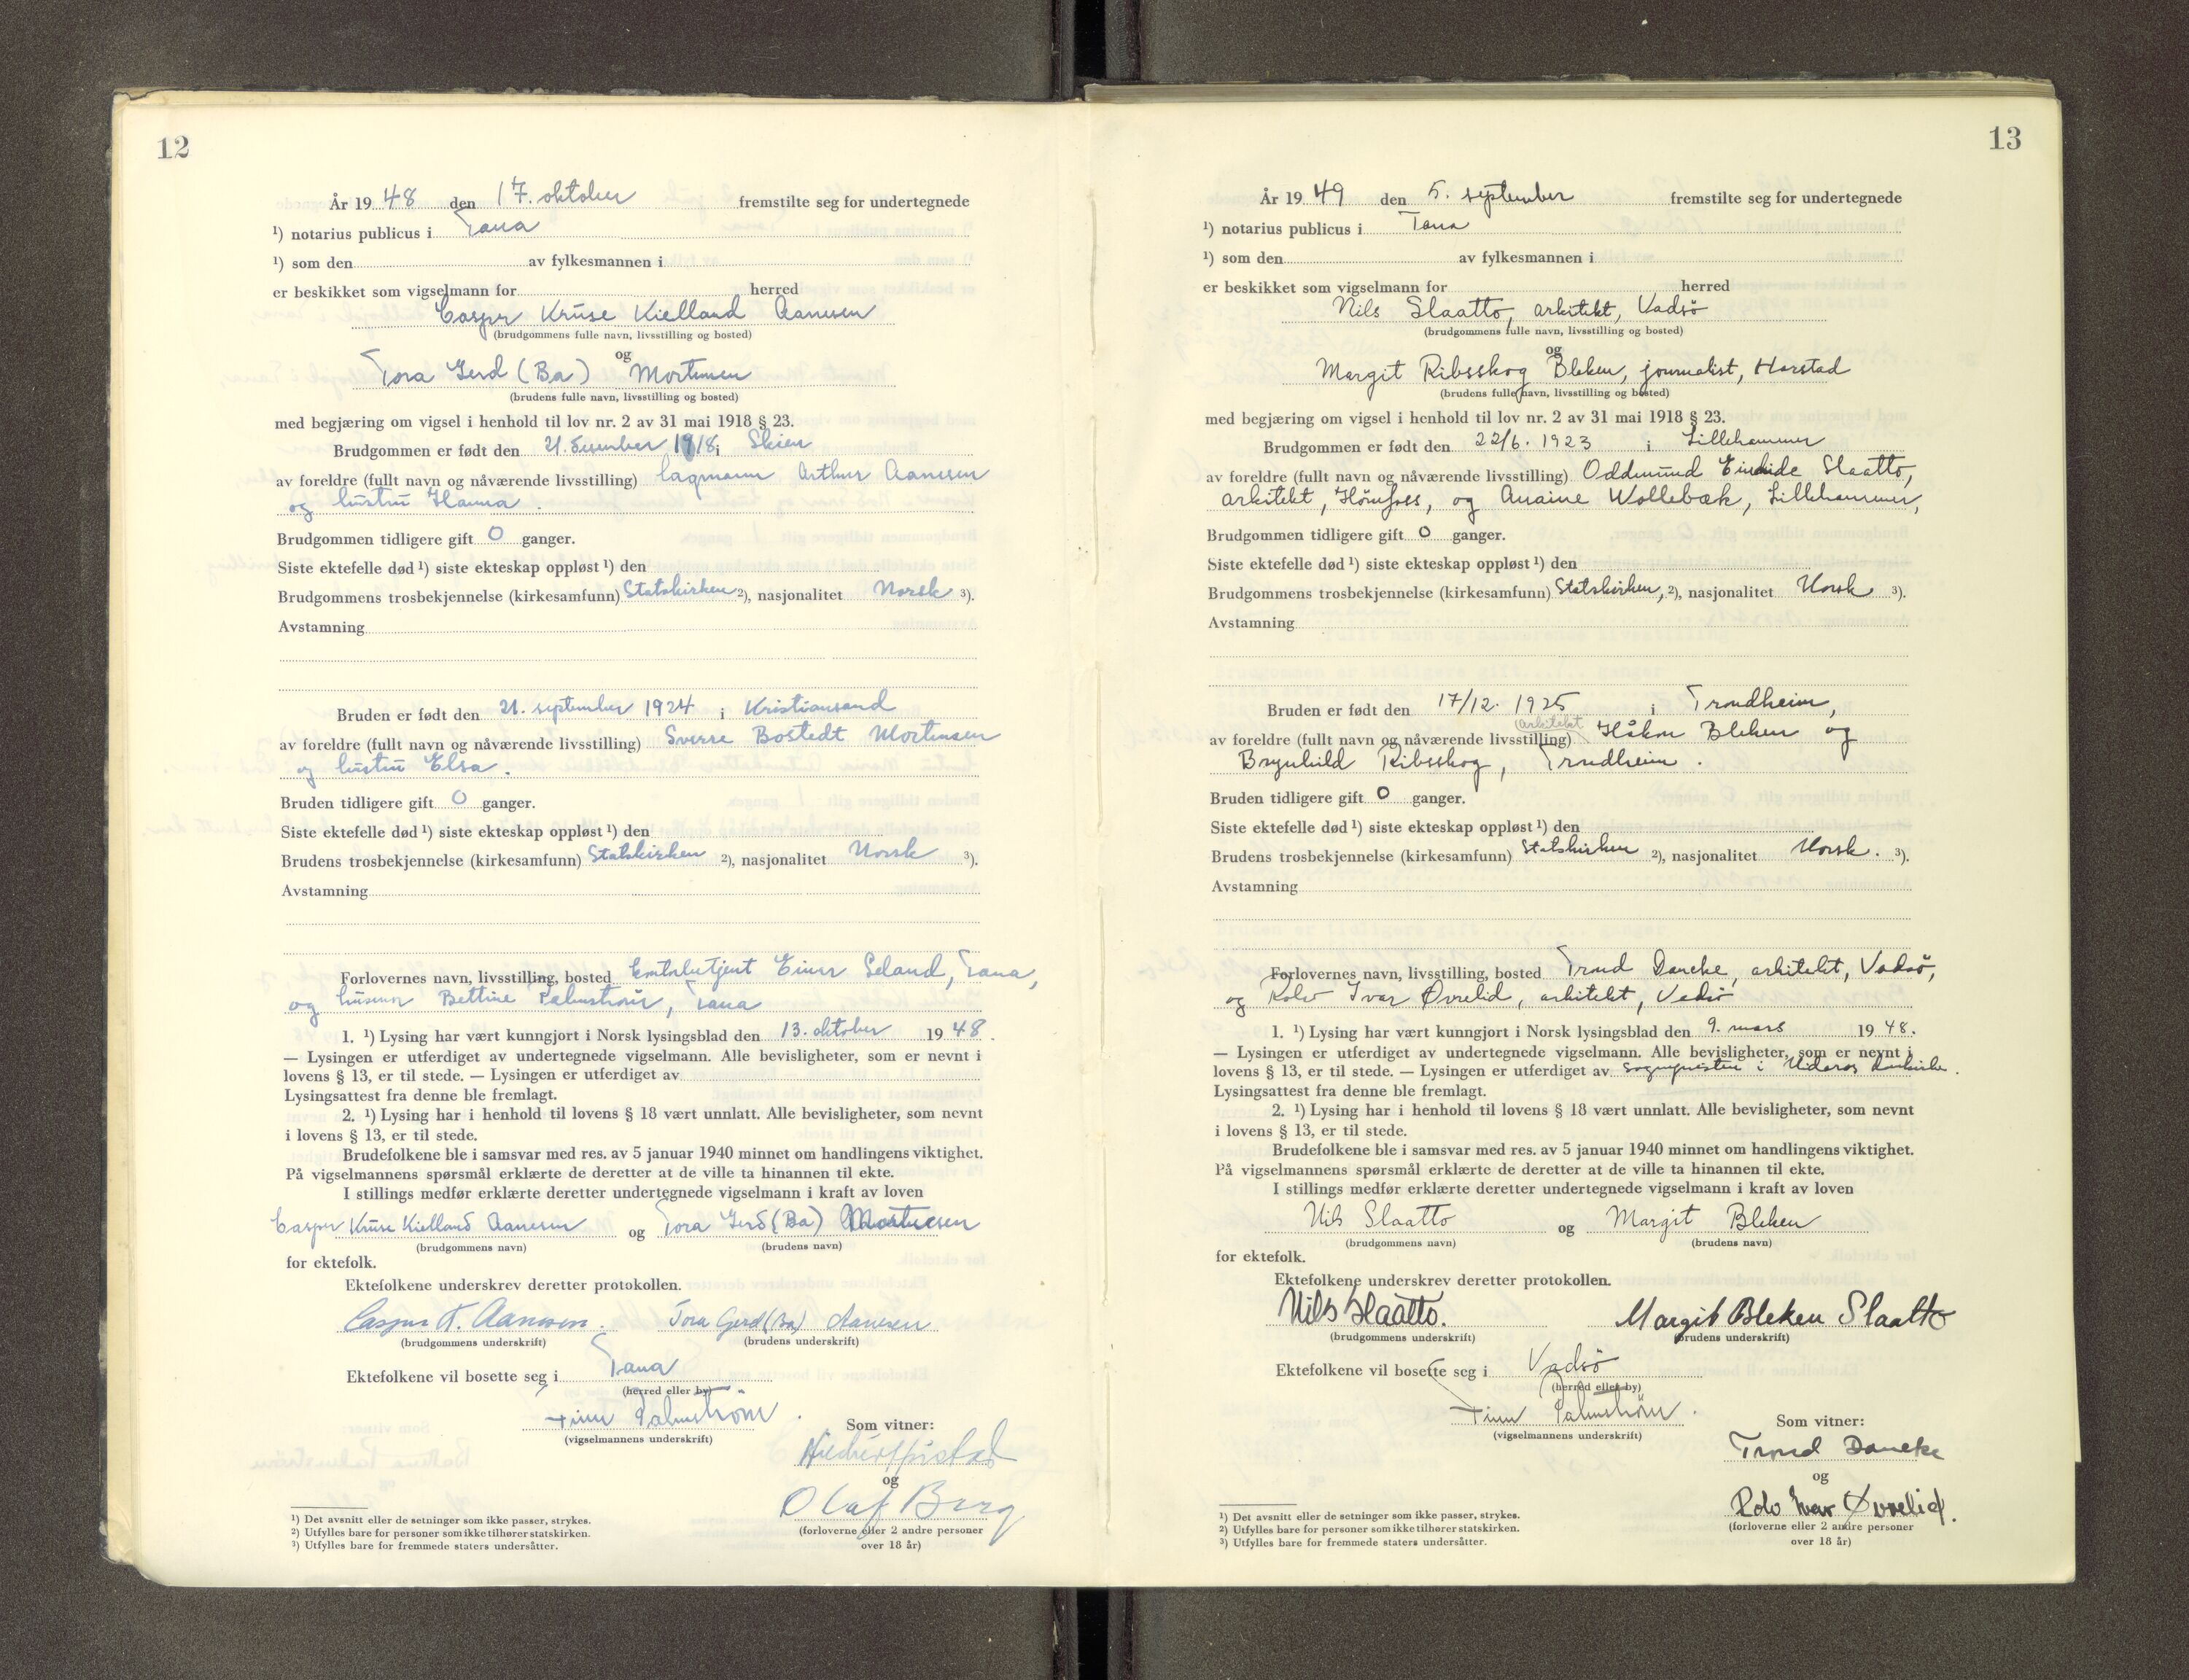 12
År 1948 den 17. oktober fremstilte seg for undertegnede
¹) notarius publicus i Tana
¹) som den av fylkesmannen i
er beskikket som vigselmann for herred
Casper Kruse Kielland Aanesen
(brudgommens fulle navn, livsstilling og bosted)
og
Tora Gerd (Ba) Mortensen
(brudens fulle navn, livsstilling og bosted)
med begjæring om vigsel i henhold til lov nr. 2 av 31 mai 1918 § 23.
Brudgommen er født den 21. desember 1918 i Skien
av foreldre (fullt navn og nåværende livsstilling) lagmann Arthur Aanesen
og hustru Hanna.
Brudgommen tidligere gift 0 ganger.
Siste ektefelle død ¹) siste ekteskap oppløst ¹) den
Brudgommens trosbekjennelse (kirkesamfunn) Statskirken ²), nasjonalitet Norsk ³).
Avstamning
Bruden er født den 21. september 1924 i Kristiansand
av foreldre (fullt navn og nåværende livsstilling) Sverre Bostedt Mortensen
og hustru Elsa.
Bruden tidligere gift 0 ganger.
Siste ektefelle død ¹) siste ekteskap oppløst ¹) den
Brudens trosbekjennelse (kirkesamfunn) Statskirken ²), nasjonalitet Norsk ³).
Avstamning
Forlovernes navn, livsstilling, bosted Einar Seland, Tana,
og husmor Bettine Palmstrøm, Tana
1. ¹) Lysing har vært kunngjort i Norsk lysingsblad den 13. oktober 1948.
— Lysingen er utferdiget av undertegnede vigselmann. Alle bevisligheter, som er nevnt i
lovens § 13, er til stede. — Lysingen er utferdiget av
Lysingsattest fra denne ble fremlagt.
2. ¹) Lysing har i henhold til lovens § 18 vært unnlatt. Alle bevisligheter, som nevnt
i lovens § 13, er til stede.
Brudefolkene ble i samsvar med res. av 5 januar 1940 minnet om handlingens viktighet.
På vigselmannens spørsmål erklærte de deretter at de ville ta hinannen til ekte.
I stillings medfør erklærte deretter undertegnede vigselmann i kraft av loven
Casper Kruse Kielland Aanesen og Tora Gerd (Ba) Mortensen
(brudgommens navn) (brudens navn)
for ektefolk.
Ektefolkene underskrev deretter protokollen.
Casper K. Aanesen. Tora Gerd (Ba) Aanesen
(brudgommens underskrift) (brudens underskrift)
Ektefolkene vil bosette seg i Tana
(herred eller by)
Finn Palmstrøm.
(vigselmannens underskrift)
Som vitner:
og
Olaf Berg
(forloverne eller 2 andre personer
over 18 år)
¹) Det avsnitt eller de setninger som ikke passer, strykes.
²) Utfylles bare for personer som ikke tilhører statskirken.
³) Utfylles bare for fremmede staters undersåtter.
13
År 1949 den 5. september fremstilte seg for undertegnede
¹) notarius publicus i Tana
¹) som den av fylkesmannen i
er beskikket som vigselmann for herred
Nils Slaatto, arkitekt, Vadsö
(brudgommens fulle navn, livsstilling og bosted)
og
Margit Ribsskog Bleken, journalist, Harstad
(brudens fulle navn, livsstilling og bosted)
med begjæring om vigsel i henhold til lov nr. 2 av 31 mai 1918 § 23.
Brudgommen er født den 22/6. 1923 i Lillehammer
av foreldre (fullt navn og nåværende livsstilling) Oddmund Eindride Slaatto,
arkitekt, Hönefoss, og Wollebæk, Lillehammer,
Brudgommen tidligere gift 0 ganger.
Siste ektefelle død ¹) siste ekteskap oppløst ¹) den
Brudgommens trosbekjennelse (kirkesamfunn) Statskirken, ²), nasjonalitet Norsk ³).
Avstamning
Bruden er født den 17/12. 1925 i Trondheim,
(arkitekt
av foreldre (fullt navn og nåværende livsstilling) Håkon Bleken og
Brynhild Ribsskog, Trondheim.
Bruden tidligere gift 0 ganger.
Siste ektefelle død ¹) siste ekteskap oppløst ¹) den
Brudens trosbekjennelse (kirkesamfunn) Statskirken ²), nasjonalitet Norsk. ³).
Avstamning
Forlovernes navn, livsstilling, bosted Trond Dancke, arkitekt, Vadsö,
og Rolv Ivar Øvrelid, arkitekt, Vadsö
1. ¹) Lysing har vært kunngjort i Norsk lysingsblad den 9. mars 1948.
— Lysingen er utferdiget av undertegnede vigselmann. Alle bevisligheter, som er nevnt i
lovens § 13, er til stede. — Lysingen er utferdiget av sognepresten i Nidaros domkirke.
Lysingsattest fra denne ble fremlagt.
2. ¹) Lysing har i henhold til lovens § 18 vært unnlatt. Alle bevisligheter, som nevnt
i lovens § 13, er til stede.
Brudefolkene ble i samsvar med res. av 5 januar 1940 minnet om handlingens viktighet.
På vigselmannens spørsmål erklærte de deretter at de ville ta hinannen til ekte.
I stillings medfør erklærte deretter undertegnede vigselmann i kraft av loven
Nils Slaatto og Margit Bleken
(brudgommens navn) (brudens navn)
for ektefolk.
Ektefolkene underskrev deretter protokollen.
Nils Slaatto. Margit Bleken Slaatto
(brudgommens underskrift) (brudens underskrift)
Ektefolkene vil bosette seg i Vadsö
(herred eller by)
Finn Palmstrøm.
(vigselmannens underskrift)
Som vitner:
Trond Dancke
og
Rolv Ivar Øvrelid.
(forloverne eller 2 andre personer
over 18 år)
¹) Det avsnitt eller de setninger som ikke passer, strykes.
²) Utfylles bare for personer som ikke tilhører statskirken.
³) Utfylles bare for fremmede staters undersåtter.